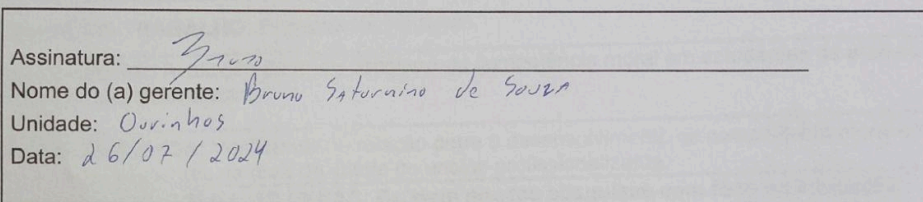 Assinatura: Bruno
Nome do (a) gerente: Bruno Saturnino de Souza
Unidade: Ourinhos
Data: 26/07/2024